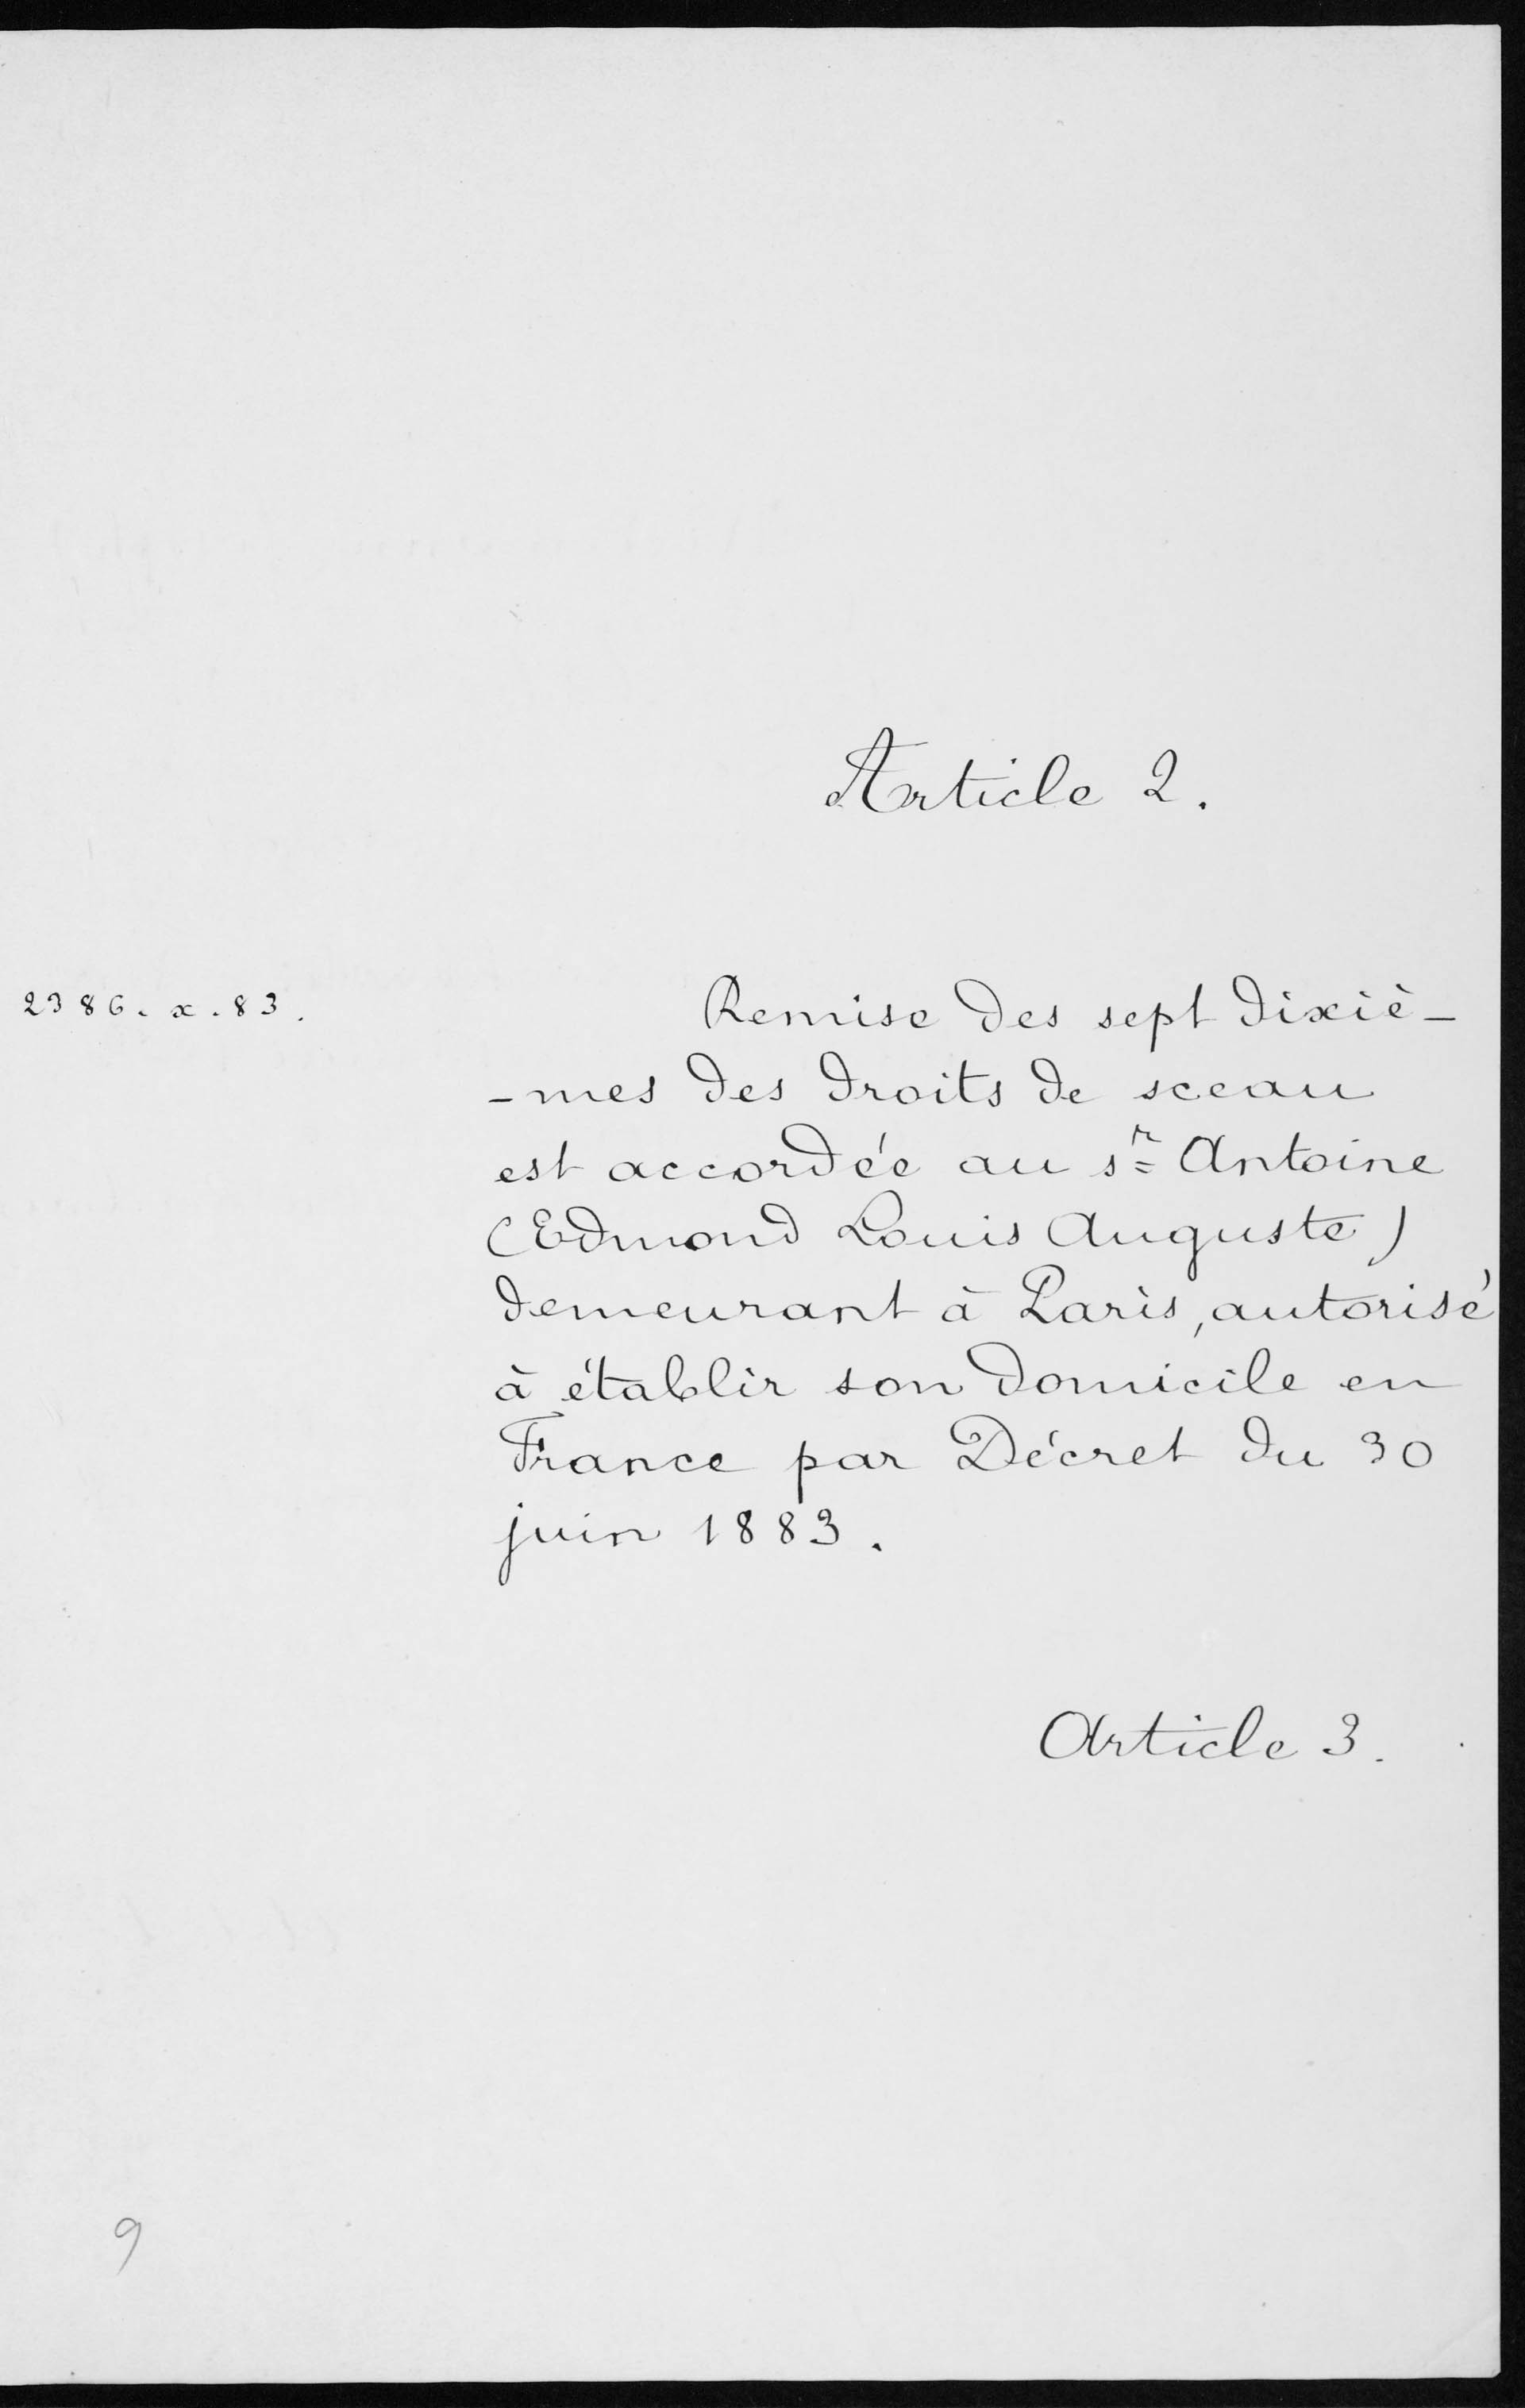 Article 2.
2386. x. 83.
Remise des sept dixiè-
-mes des droits de sceau
est accordée au sr Antoine
(Edmond Louis Auguste)
demeurant à Paris, autorisé
à établir son domicile en
France par Décret du 30
juin 1883.
Article 3.
9